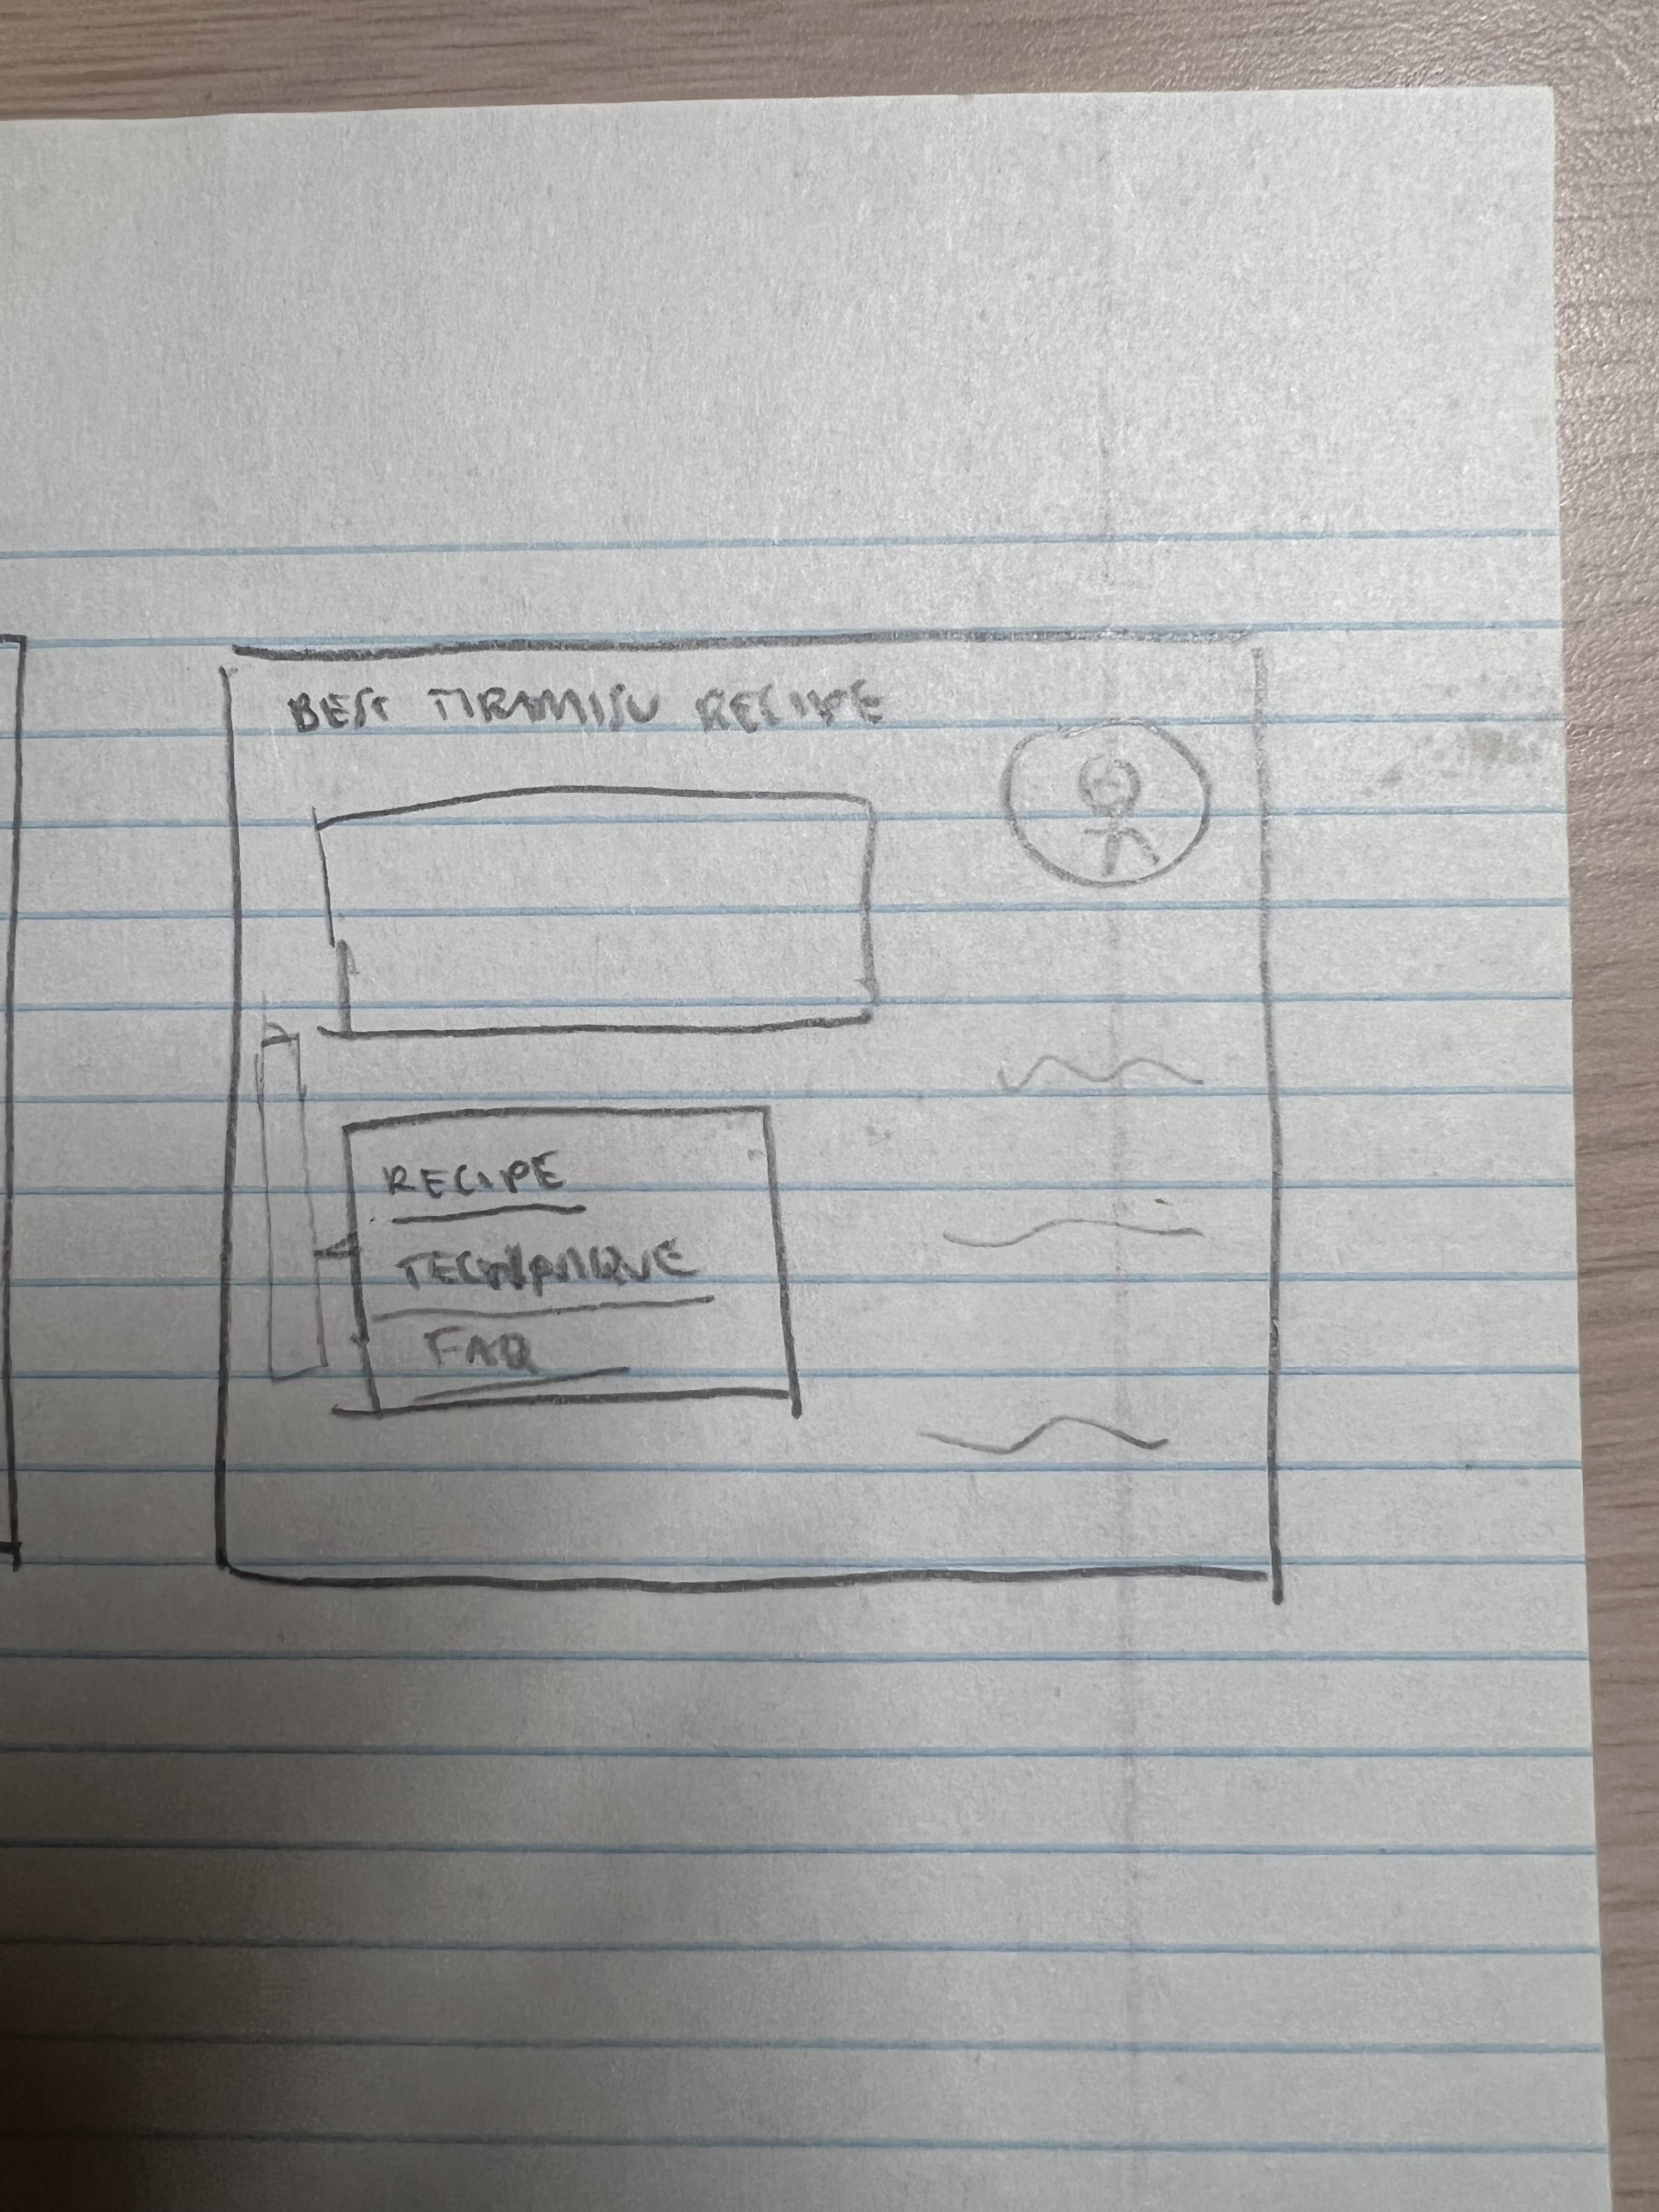 BEST TIRAMISU RECIPE
RECIPE
TECHNIQUE
FAQ